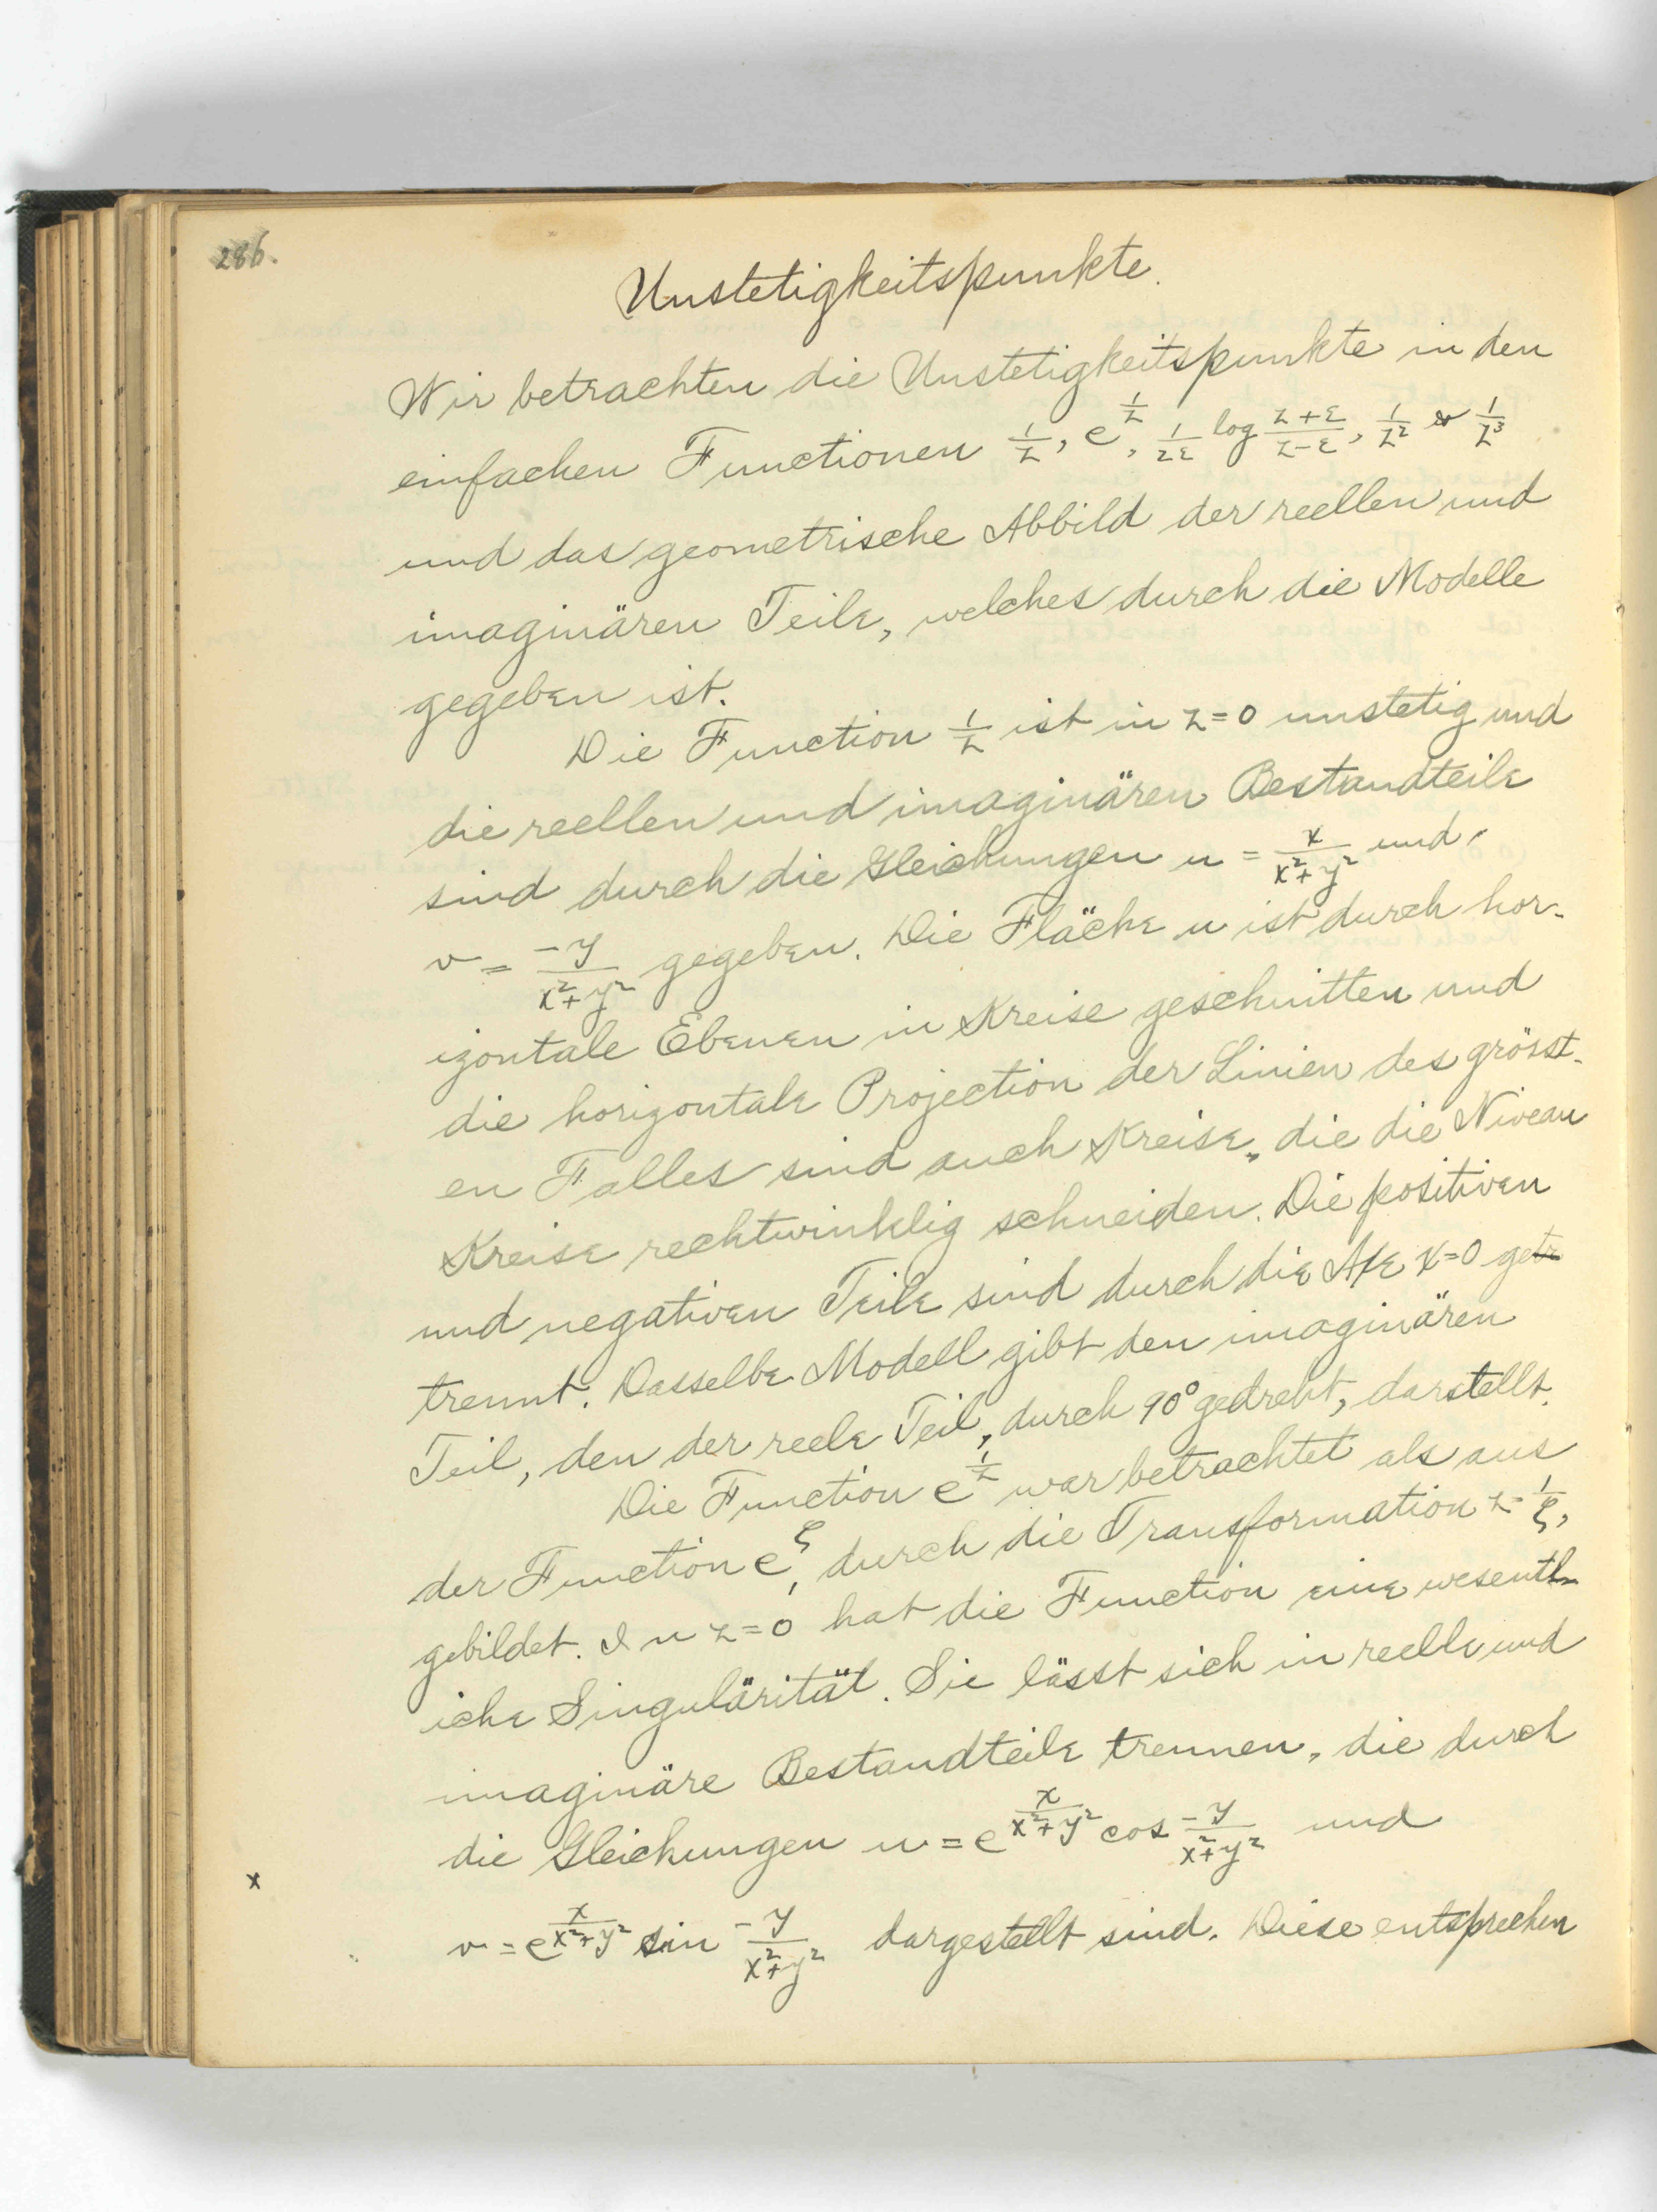 286.
Unstetigkeitspunkte.
Wir betrachten die Unstetigkeitspunkte in den
einfachen Functionen 1/z, e^{1/z}, 1/2ε log (z+ε)/(z-ε), 1/z² & 1/z³
und das geometrische Abbild der reellen und
imaginären Teile, welches durch die Modelle
gegeben ist.
Die Function 1/z ist in z=0 unstetig und
die reellen und imaginären Bestandteile
sind durch die Gleichungen u = x/(x²+y²) und
v = -y/(x²+y²) gegeben. Die Fläche u ist durch hor-
izontale Ebenen in Kreise geschnitten und
die horizontale Projection der Linien des grösst-
en Falles sind auch Kreise, die die Niveau
Kreise rechtwinklig schneiden. Die positiven
und negativen Teile sind durch die Axe x=0 ge
trennt. Dasselbe Modell gibt den imaginären
Teil, den der reele Teil, durch 90° gedreht, darstellt.
Die Function e^{1/z} war betrachtet als aus
der Function e^ζ, durch die Transformation z=1/ζ,
gebildet. In z=0 hat die Function eine wesentl-
iche Singulärität. Sie lässt sich in reelle und
imaginäre Bestandteile trennen, die durch
die Gleichungen u = e^{x/(x²+y²)} cos -y/(x²+y²) und
x
v = e^{x/(x²+y²)} sin -y/(x²+y²) dargestellt sind. Diese entsprechen